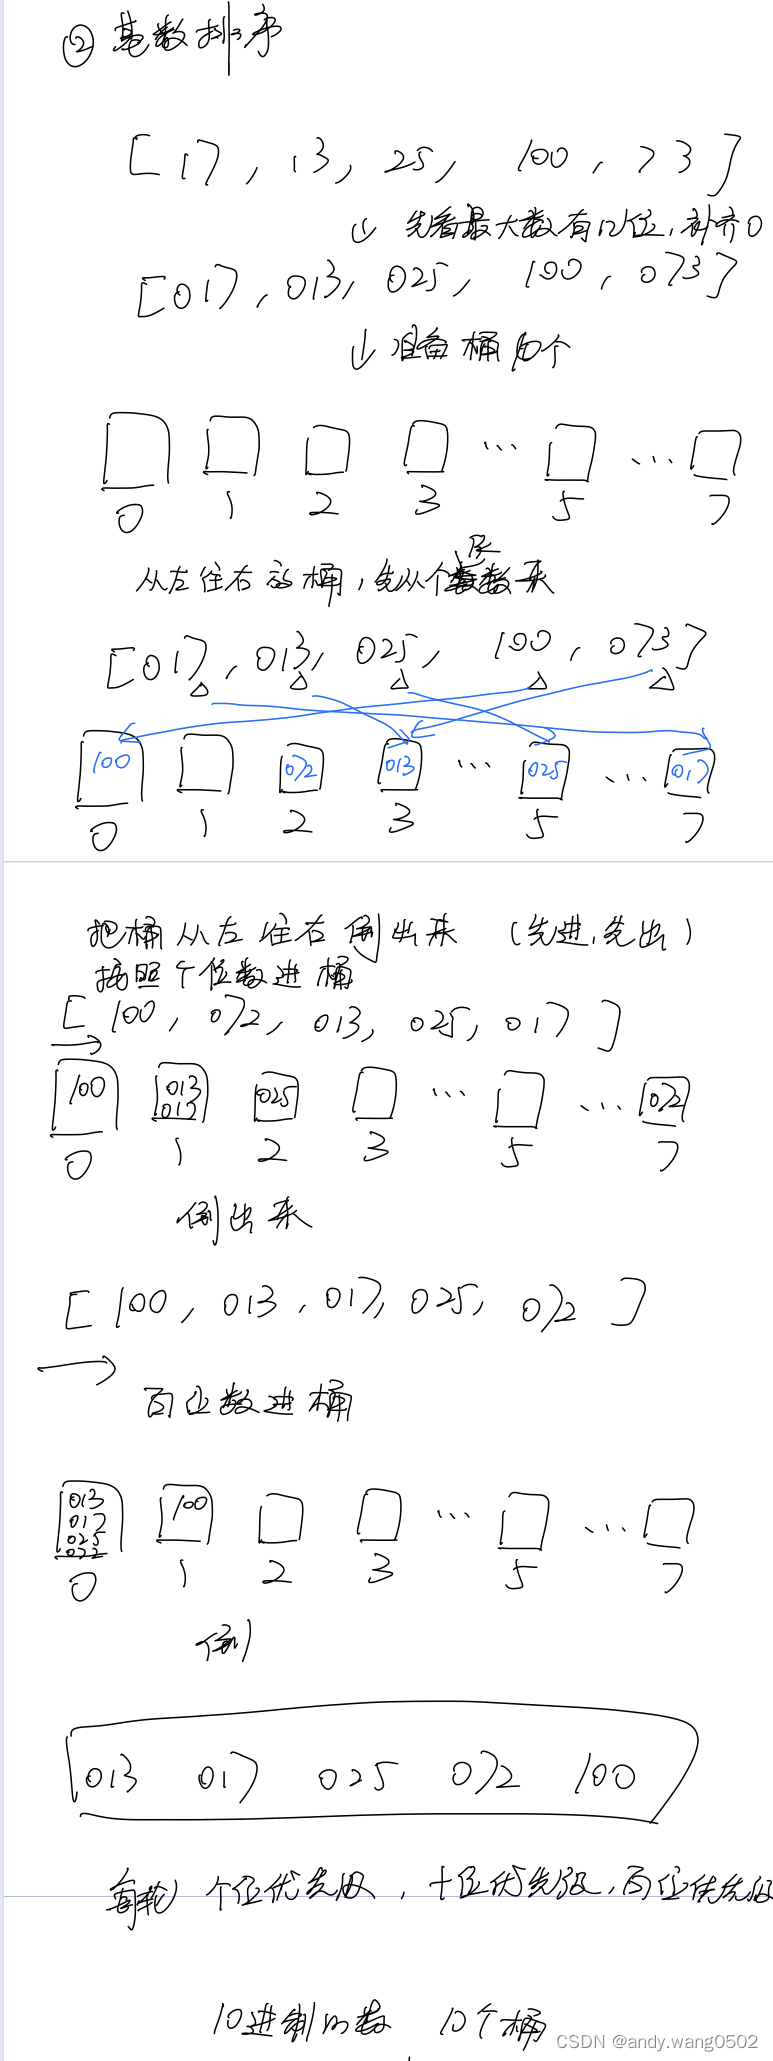 ② 基数排序
[17, 13, 25, 100, 73]
↓ 先看最大数有几位,补齐0
[017, 013, 025, 100, 073]
↓ 准备桶10个
0 1 2 3 … 5 … 7
从左往右放桶,先从个位数来
[017, 013, 025, 100, 073]
100 072 013 … 025 … 017
0 1 2 3 5 7
把桶从左往右倒出来 (先进,先出)
按照个位数进桶
[100, 072, 013, 025, 017]
→
100 013 025 … … 072
017
0 1 2 3 5 7
倒出来
[100, 013, 017, 025, 072]
→
百位数进桶
013 100 … …
017
025
072
0 1 2 3 5 7
倒
013 017 025 072 100
每轮 个位优先级, 十位优先级, 百位优先级
10进制的数 10个桶
CSDN @andy.wang0502